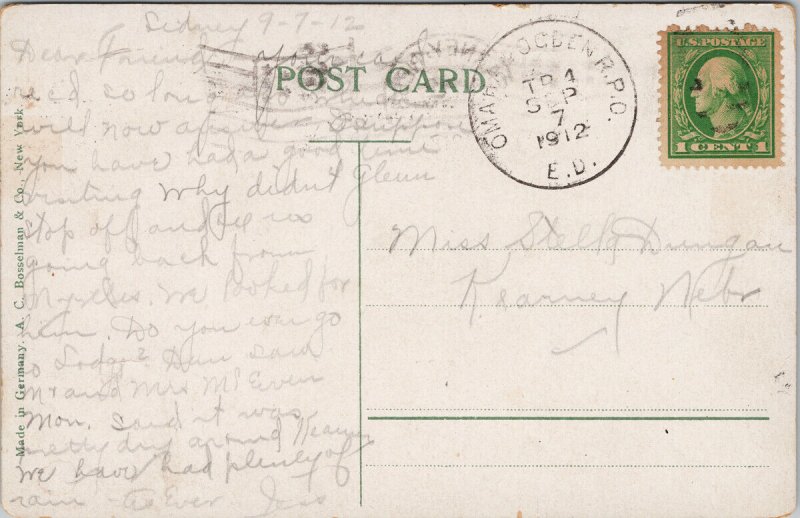 Sidney 9-7-12
Dear Friend your card
rec'd so long ago
will now answer Suppose
you have had a good time
visiting Why didn't Glenn
stop off and see us
going back from
Myrtles. We looked for
him. Do you ever go
to Lodge? Dan said
Mr and Mrs McEwen
Mon. said it was
pretty dry around Kearney
We have had plenty of
rain - As Ever Jess
POST CARD
Made in Germany. A. C. Bosselman & Co., New York.
OMAHA & OGDEN R.P.O.
TR 4
SEP
7
1912
E.D.
U.S. POSTAGE
1 CENT 1
Miss Stella Dungan
Kearney Nebr